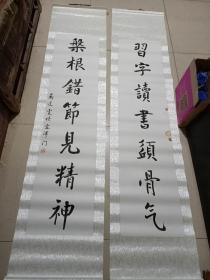 習字讀書顯骨气
槃根錯節見精神